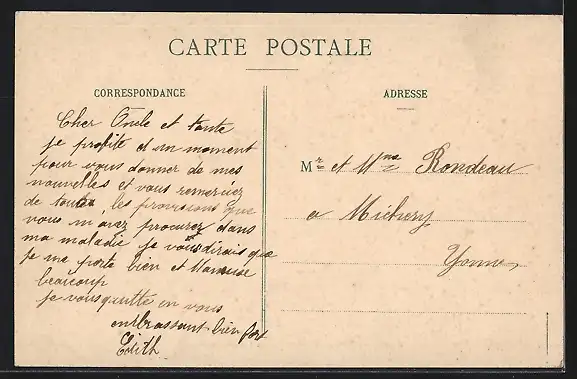 CARTE POSTALE
CORRESPONDANCE
Cher Oncle et tante
je profite d un moment
pour vous donner de mes
nouvelles et vous remerciez
de toutes les provisions que
vous m avez procurez dans
ma maladie je vous dirais que
je me porte bien et
beaucoup
je vous quitte en vous
embrassant bien fort
Edith
ADRESSE
Mr et Mme Rondeau
a Michery
Yonne